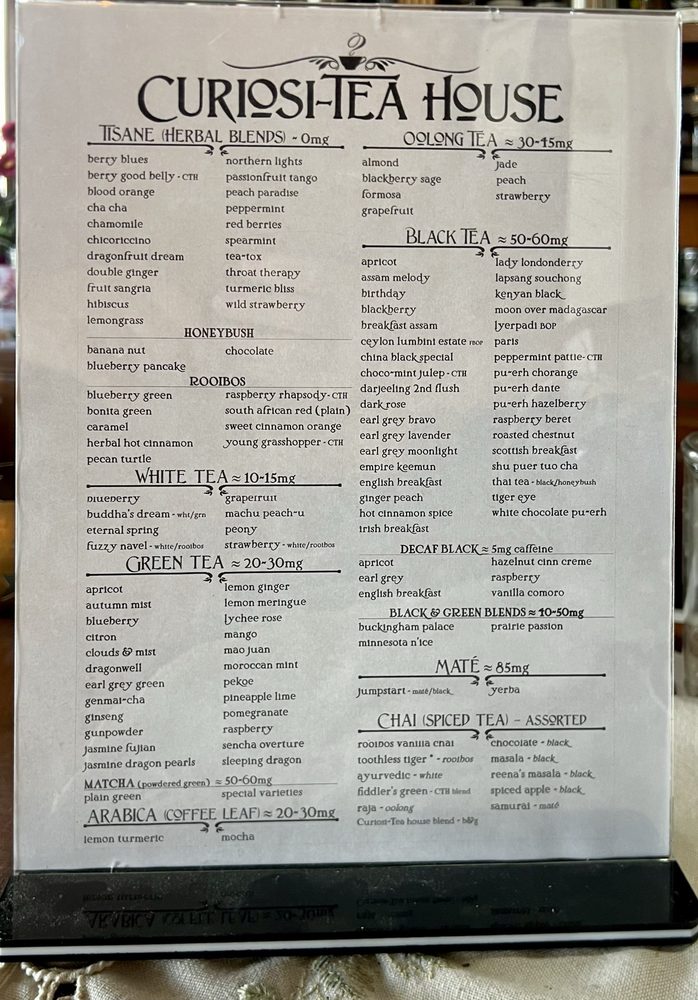 CURIOSI-TEA HOUSE
TISANE (HERBAL BLENDS) - 0mg
berry blues
berry good belly - CTH
blood orange
cha cha
chamomile
chicoriccino
dragonfruit dream
double ginger
fruit sangria
hibiscus
lemongrass
northern lights
passionfruit tango
peach paradise
peppermint
red berries
spearmint
tea-tox
throat therapy
turmeric bliss
wild strawberry
HONEYBUSH
banana nut
blueberry pancake
chocolate
ROOIBOS
blueberry green
bonita green
caramel
herbal hot cinnamon
pecan turtle
raspberry rhapsody - CTH
south african red (plain)
sweet cinnamon orange
young grasshopper - CTH
WHITE TEA ≈ 10-15mg
blueberry
buddha's dream - wht/grn
eternal spring
fuzzy navel - white/rooibos
grapefruit
machu peach-u
peony
strawberry - white/rooibos
GREEN TEA ≈ 20-30mg
apricot
autumn mist
blueberry
citron
clouds & mist
dragonwell
earl grey green
genmai-cha
ginseng
gunpowder
jasmine fujian
jasmine dragon pearls
lemon ginger
lemon meringue
lychee rose
mango
mao juan
moroccan mint
pekoe
pineapple lime
pomegranate
raspberry
sencha overture
sleeping dragon
MATCHA (powdered green) ≈ 50-60mg
plain green
special varieties
ARABICA (COFFEE LEAF) ≈ 20-30mg
lemon turmeric
mocha
OOLONG TEA ≈ 30-45mg
almond
blackberry sage
formosa
grapefruit
jade
peach
strawberry
BLACK TEA ≈ 50-60mg
apricot
assam melody
birthday
blackberry
breakfast assam
ceylon lumbini estate FBOP
china black special
choco-mint julep - CTH
darjeeling 2nd flush
dark rose
earl grey bravo
earl grey lavender
earl grey moonlight
empire keemun
english breakfast
ginger peach
hot cinnamon spice
irish breakfast
lady londonderry
lapsang souchong
kenyan black
moon over madagascar
lyerpadi BOP
paris
peppermint pattie - CTH
pu-erh chorange
pu-erh dante
pu-erh hazelberry
raspberry beret
roasted chestnut
scottish breakfast
shu puer tuo cha
thai tea - black/honeybush
tiger eye
white chocolate pu-erh
DECAF BLACK ≈ 5mg caffeine
apricot
earl grey
english breakfast
hazelnut cinn creme
raspberry
vanilla comoro
BLACK & GREEN BLENDS ≈ 10-50mg
buckingham palace
minnesota n'ice
prairie passion
MATÉ ≈ 85mg
jumpstart - maté/black
yerba
CHAI (SPICED TEA) - ASSORTED
rooibos vanilla chai
toothless tiger * - rooibos
ayurvedic - white
fiddler's green - CTH blend
raja - oolong
Curiosi-Tea house blend - b&g
chocolate - black
masala - black
reena's masala - black
spiced apple - black
samurai - maté